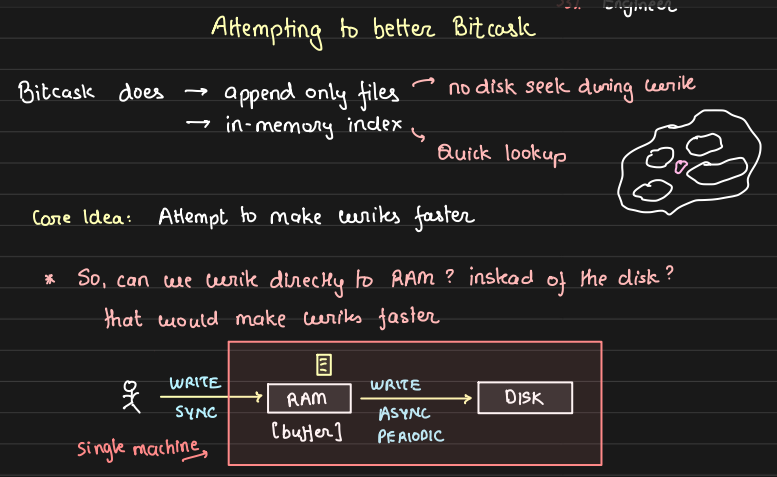 Engineer
Attempting to better Bitcask
Bitcask does → append only files → no disk seek during write
→ in-memory index
Quick lookup
Core Idea: Attempt to make writes faster
* So, can we write directly to RAM? instead of the disk?
that would make writes faster
WRITE
SYNC
RAM
[buffer]
WRITE
ASYNC
PERIODIC
DISK
single machine